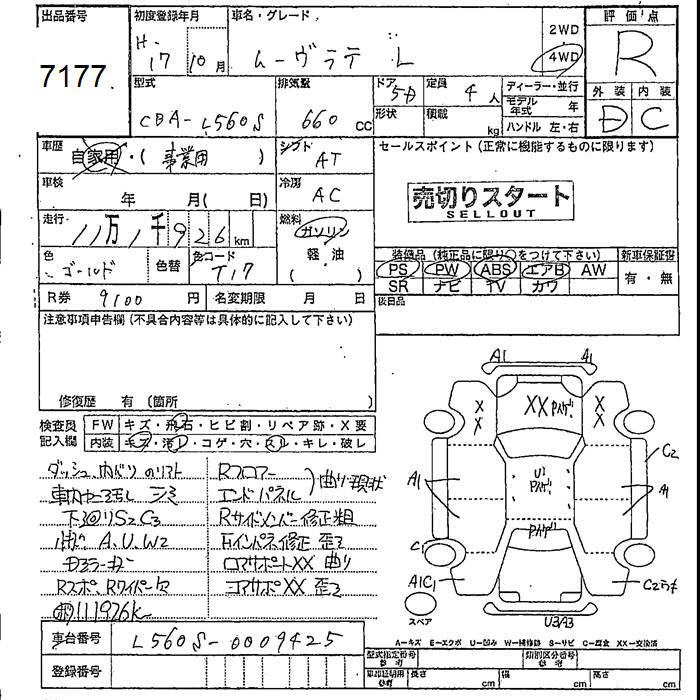 出品番号
7177
初度登録年月
H-17 10月
車名・グレード
ムーヴラテ L
2WD
4WD
評価点
R
外装 内装
D C
型式
CBA-L560S
排気量
660 cc
ドア 5D
形状
定員 4人
積載 kg
ディーラー・並行
モデル年式 年
ハンドル 左・右
車歴
自家用・( 事業用 )
シフト
AT
セールスポイント (正常に機能するものに限ります)
売切りスタート
SELLOUT
車検
年 月( 日)
冷房
AC
走行
11万1千926km
燃料
ガソリン
軽油
( )
装備品 (純正品に限り○をつけて下さい)
新車保証書
PS PW ABS エアB AW
SR ナビ TV カワ
有・無
色
ゴールド
色替
色コード
T17
後日品
R券 9100円
名変期限 月 日
注意事項申告欄 (不具合内容等は具体的に記入して下さい)
修復歴 有 (箇所
検査員記入欄
FW キズ・飛石・ヒビ割・リペア跡・X要
内装 キズ・汚レ・コゲ・穴・スレ・キレ・破レ
Rフロアー
エンドパネル
曲り現状
下廻りS2C3
Rサイドメンバー修正粗
A.U.W2
インパネ修正 歪
コアサポートXX 曲り
コアサポXX 歪
111926k
車台番号
L560S-0009425
登録番号
A1
A1
XX
U1
A1
C1
A1C1
C2
A1
スペア
U3A3
A-キズ E-エクボ U-凹み W-補修跡 S-サビ C-腐食 XX-交換済
型式指定番号
参考
類別区分番号
参考
車両証明用
参考
長さ cm
幅 cm
高さ cm